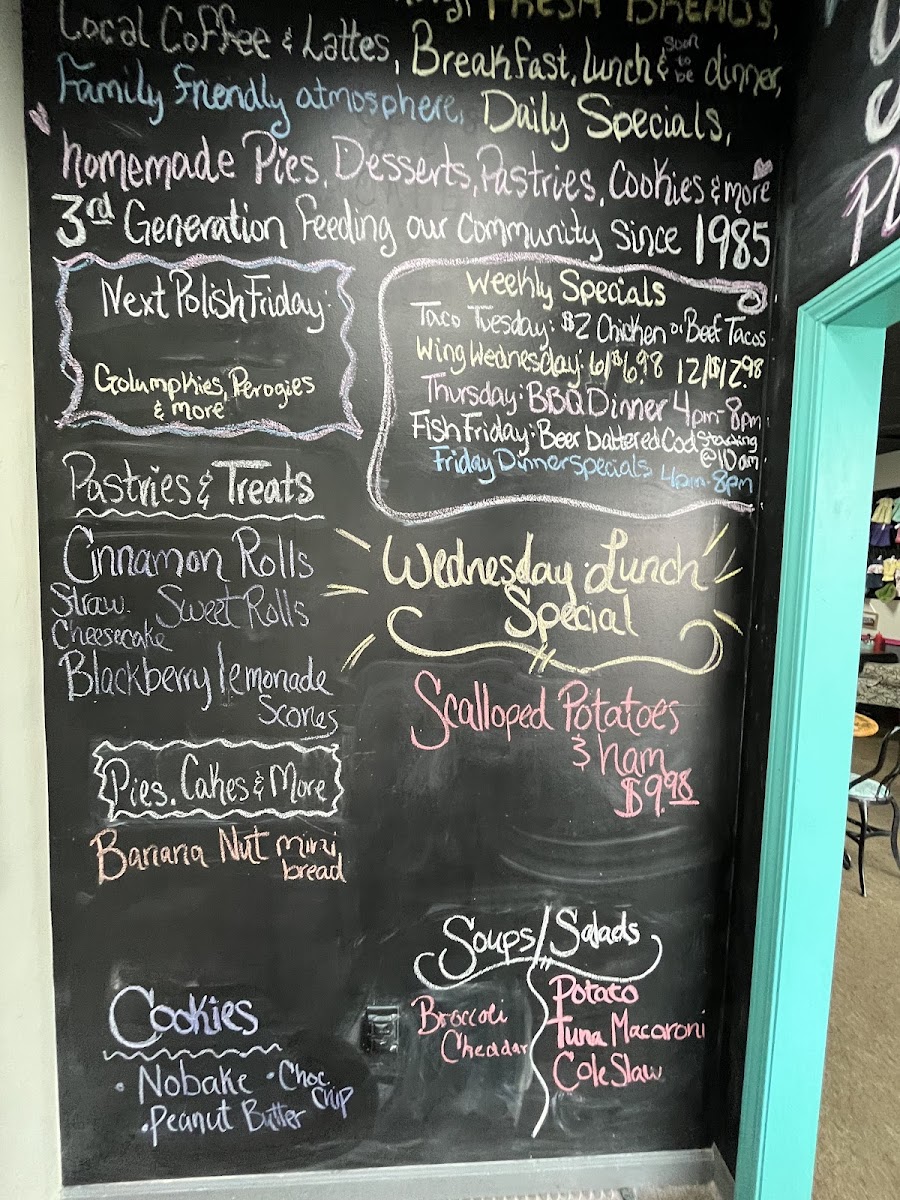 FRESH BREADS,
Local Coffee & Lattes, Breakfast, Lunch & soon to be dinner,
Family Friendly atmosphere, Daily Specials,
homemade Pies, Desserts, Pastries, Cookies & more
3rd Generation Feeding our Community Since 1985
Next Polish Friday:
Golumpkies, Perogies
& more
Weekly Specials
Taco Tuesday: $2 Chicken or Beef Tacos
Wing Wednesday: 6/$6.98 12/$12.98
Thursday: BBQ Dinner 4pm-8pm
Fish Friday: Beer battered Cod Starting
@10am
Friday Dinner specials 4pm-8pm
Pastries & Treats
Cinnamon Rolls
Straw. Sweet Rolls
Cheesecake
Blackberry lemonade
Scones
Pies, Cakes & More
Banana Nut mini
bread
Cookies
• Nobake • Choc
Chip
• Peanut Butter
Wednesday Lunch
Special
Scalloped Potatoes
& ham
$9.98
Soups/Salads
Broccoli
Cheddar
Potato
Tuna Macaroni
Cole Slaw